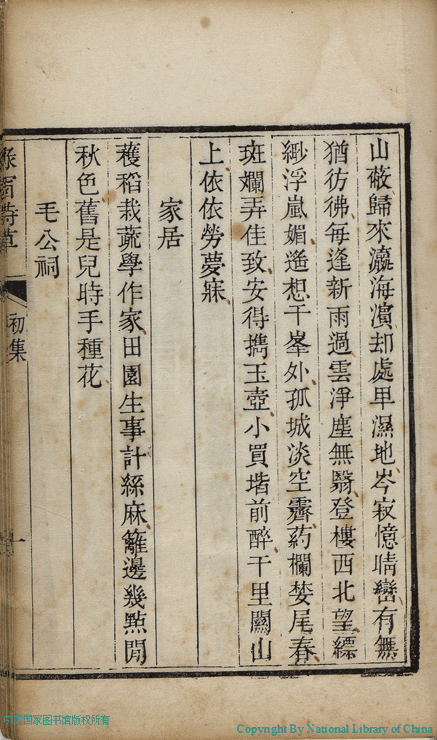 山蔽歸來瀛海濱却處卑濕地岑寂憶晴巒有無
猶彷彿每逢新雨過雲淨塵無翳登樓西北望縹
緲浮嵐媚遙想千峯外孤城淡空霽葯欄婪尾春
斑斕弄佳致安得擕玉壺小買堦前醉千里關山
上依依勞夢寐
家居
穫稻栽蔬學作家田園生事計絲麻籬邊幾點閒
秋色舊是兒時手種花
毛公祠
初集
一
中国国家图书馆版权所有
Copyright By National Library of China